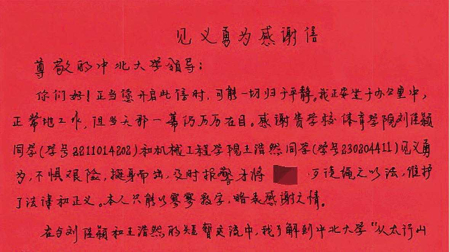 见义勇为感谢信
尊敬的中北大学领导：
你们好！正当您开启此信时，可能一切归于平静。我正安坐于办公室中，
正常地工作，但当天那一幕仍历历在目。感谢贵学校体育学院刘廷颖
同学（学号2211014202）和机械工程学院王浩然同学（学号230204411）见义勇
为，不惧艰险，挺身而出，及时报警并将 歹徒绳之以法，维护
了法律和正义。本人只能以寥寥数字，略表感谢之情。
在与刘廷颖和王浩然的短暂交流中，我了解到中北大学“从太行山